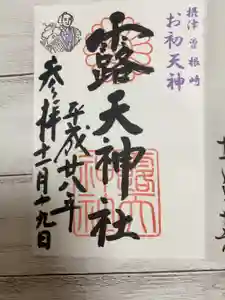 摂津 曽根崎
お初天神
露天神社
平成廿八年
参拝十二月十九日